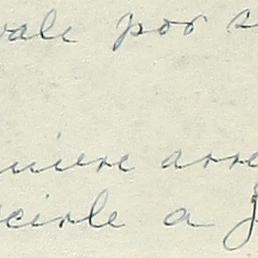 vale por s
uiere arre
cirle a J